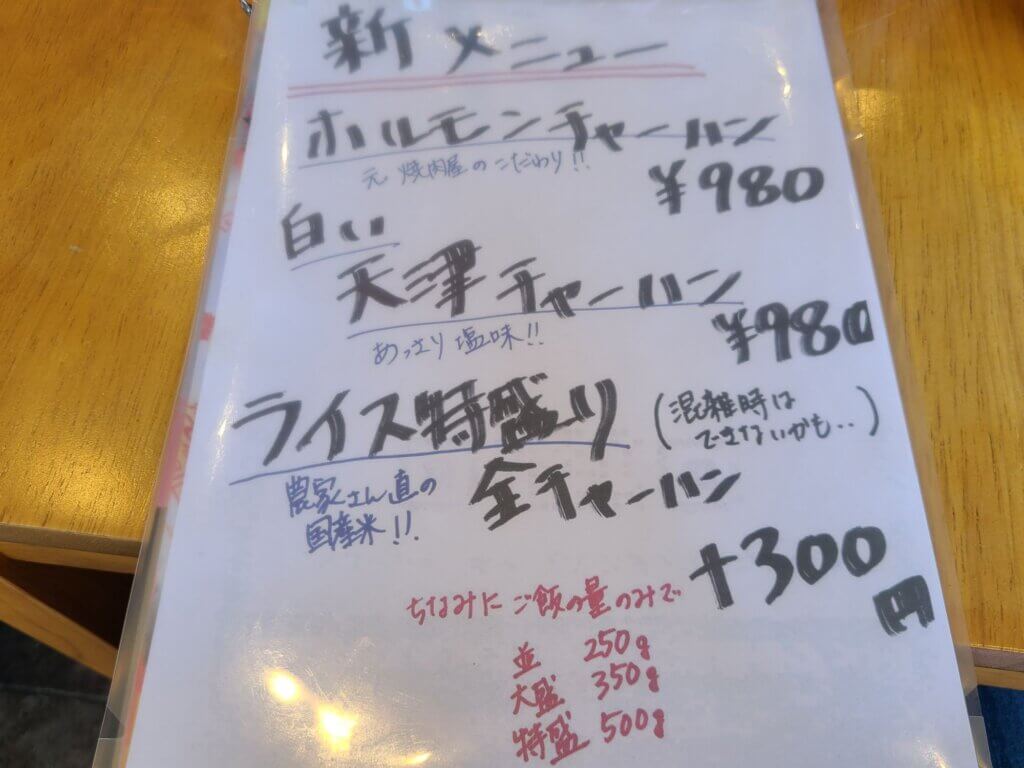 新メニュー
ホルモンチャーハン
元 焼肉屋のこだわり!!
¥980
白い
天津チャーハン
あっさり塩味!!
¥980
ライス特盛り
(混雑時は
できないかも・・)
農家さん直の
国産米!!
全チャーハン
+300
円
ちなみにご飯の量のみで
並 250g
大盛 350g
特盛 500g